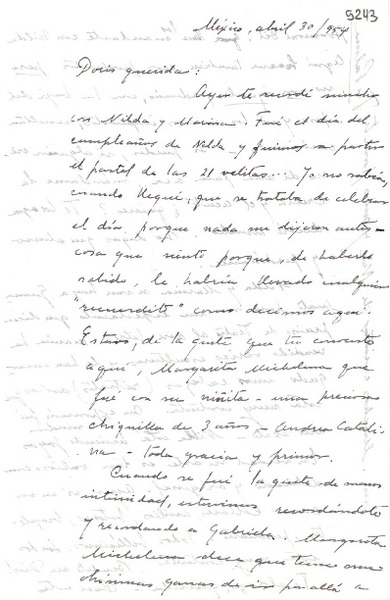 5243
México, abril 30/954
Doris querida:
Ayer te recordé mucho
con Nilda y Marina. Fué el día del
cumpleaños de Nilda y fuimos a partir
el pastel de las 21 velitas... Yo no sabía,
cuando llegué, que se trataba de celebrar
el día, porque nada me dijeron antes -
cosa que siento porque, de haberlo
sabido, le habría llevado cualquier
"recuerdito" como decimos aquí.
Estuvo, de la gente que tú conociste
aquí, Margarita Michelena que
fué con su niñita - una preciosa
chiquilla de 3 años - Andrea Catali-
na - toda gracia y primor.
Cuando se fué la gente de menos
intimidad, estuvimos recordándote
y recordando a Gabriela. Margarita
Michelena dice que tiene mu-
chísimas ganas de ir por allá a